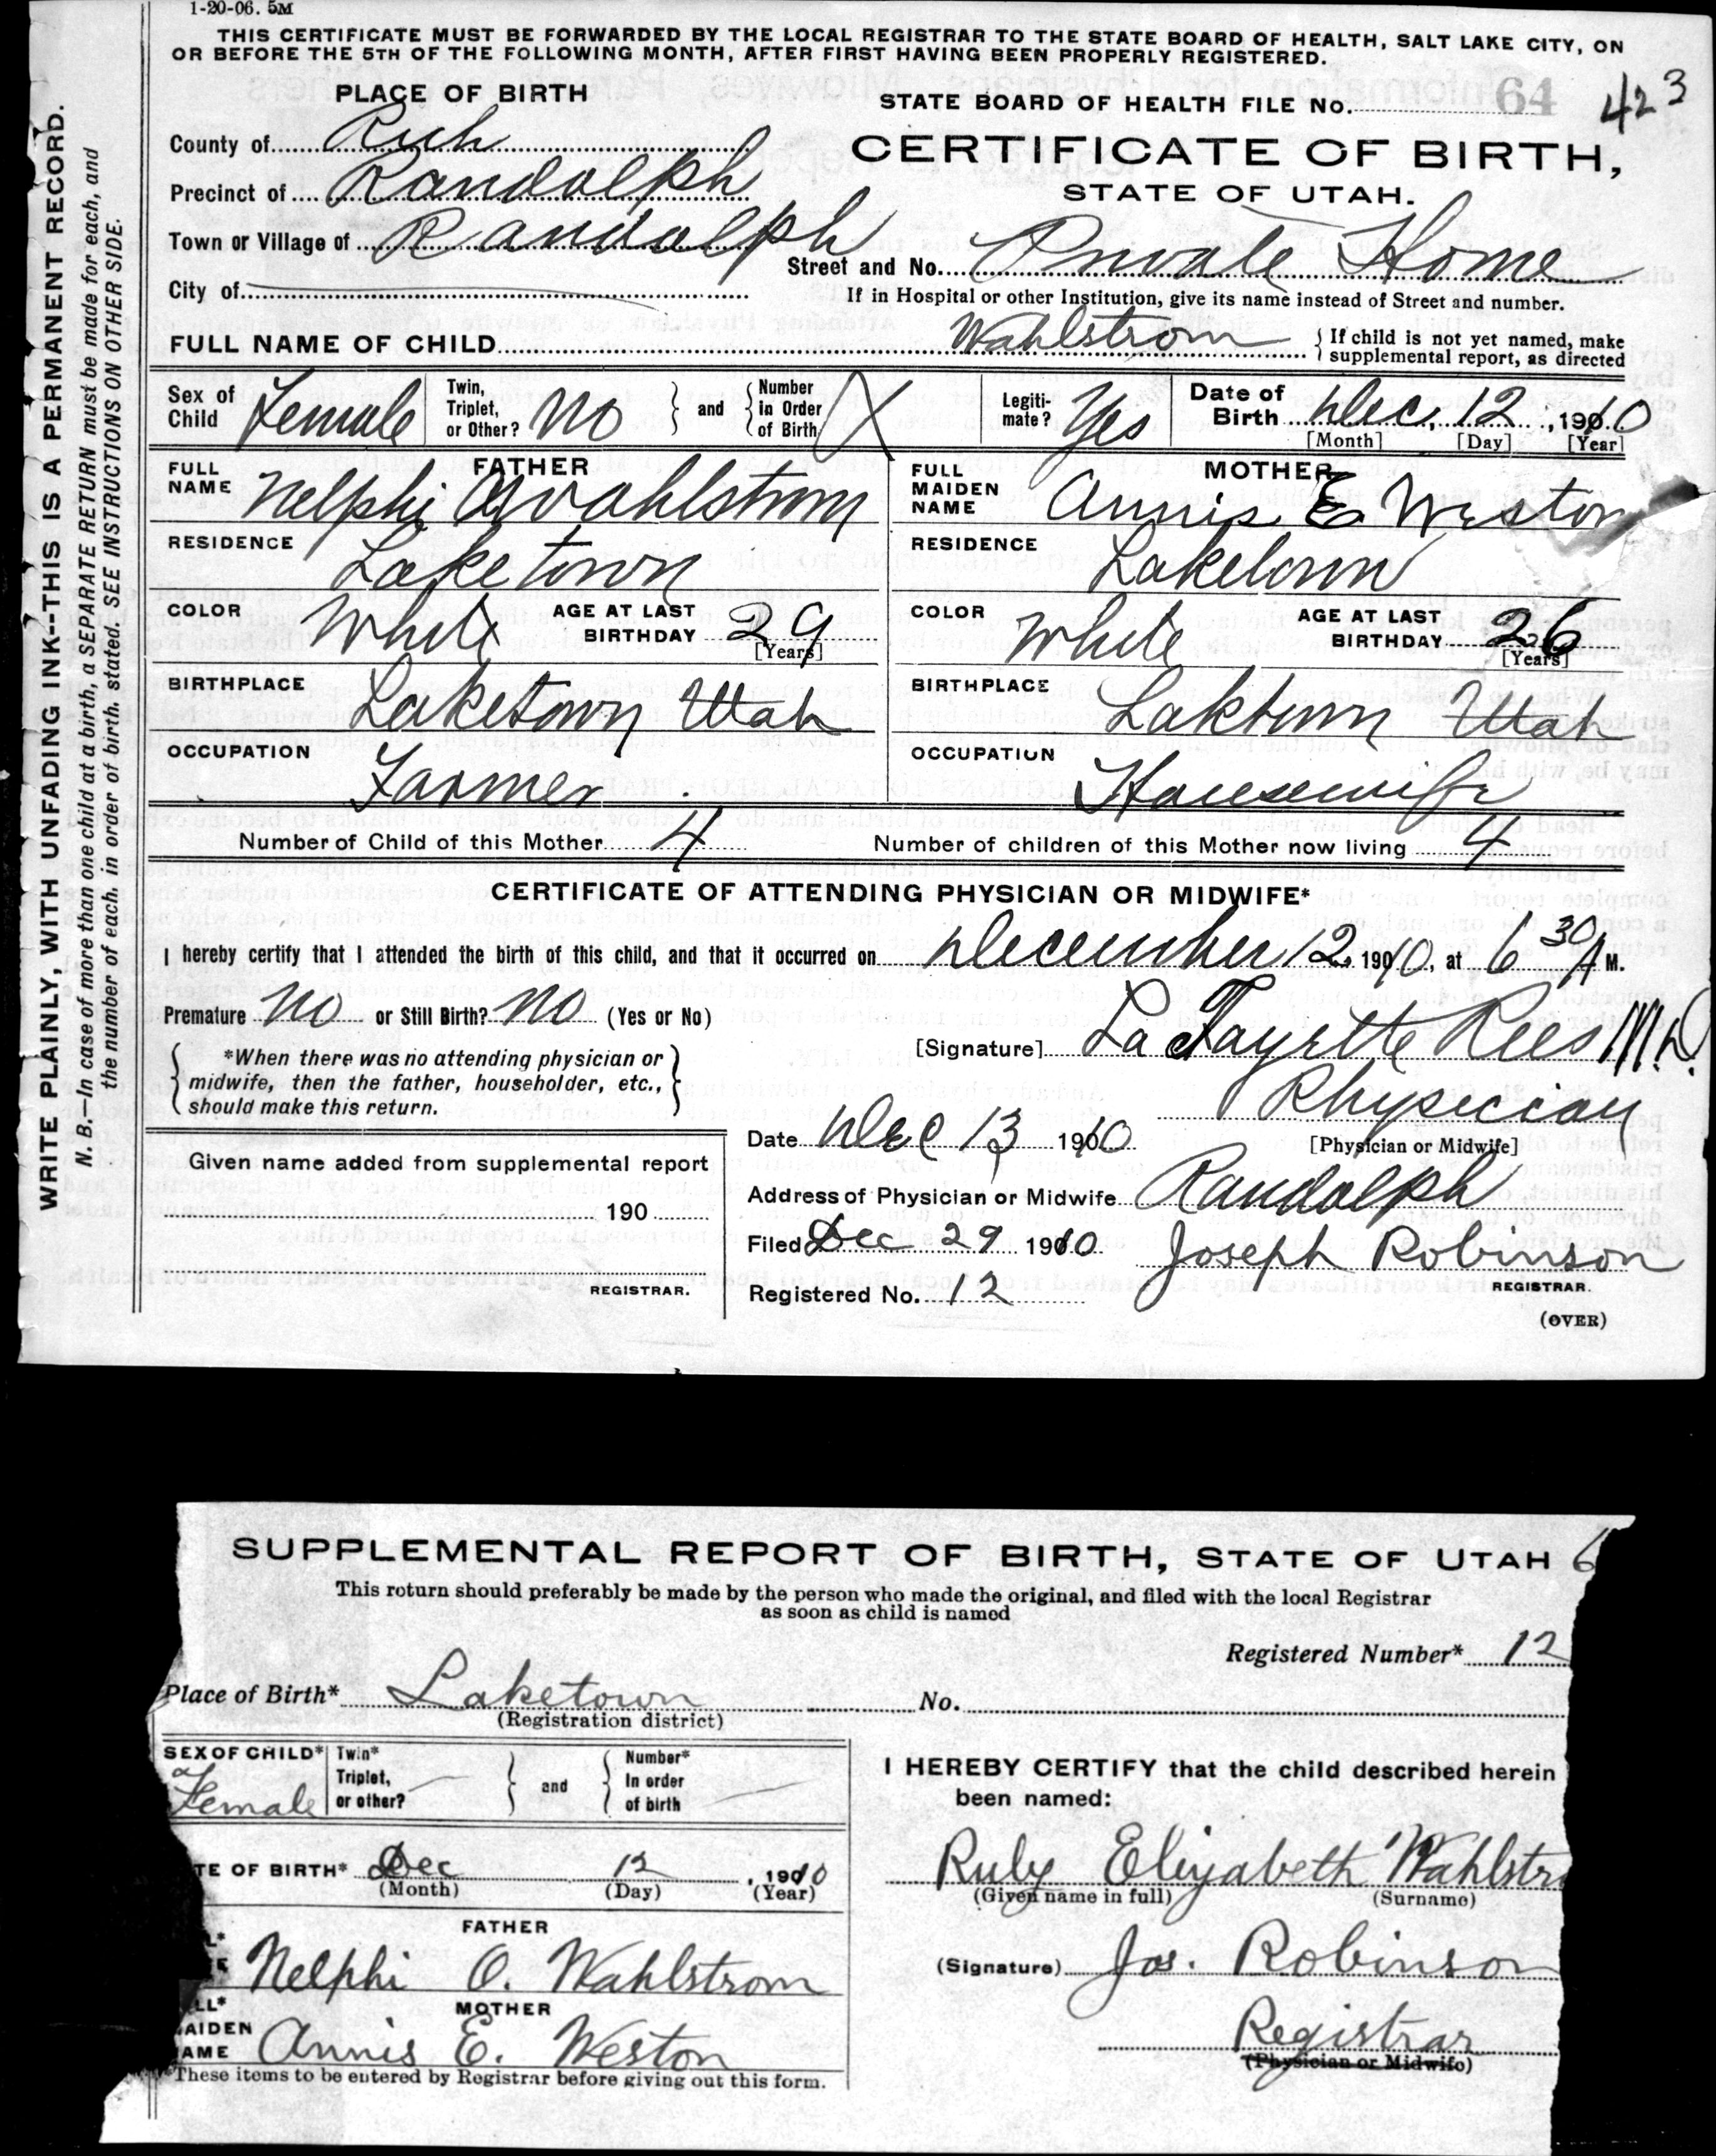 1-20-06. 5M
THIS CERTIFICATE MUST BE FORWARDED BY THE LOCAL REGISTRAR TO THE STATE BOARD OF HEALTH, SALT LAKE CITY, ON
OR BEFORE THE 5TH OF THE FOLLOWING MONTH, AFTER FIRST HAVING BEEN PROPERLY REGISTERED.
WRITE PLAINLY, WITH UNFADING INK--THIS IS A PERMANENT RECORD.
N. B.—In case of more than one child at a birth, a SEPARATE RETURN must be made for each, and
the number of each, in order of birth, stated. SEE INSTRUCTIONS ON OTHER SIDE.
PLACE OF BIRTH
STATE BOARD OF HEALTH FILE No. 64 423
County of Rich
CERTIFICATE OF BIRTH,
Precinct of Randolph
STATE OF UTAH.
Town or Village of Randolph
Street and No. Private Home
City of
If in Hospital or other Institution, give its name instead of Street and number.
FULL NAME OF CHILD Wahlstrom { If child is not yet named, make
supplemental report, as directed
Sex of Child Female
Twin, Triplet, or Other? No } and { Number In Order of Birth
Legiti-mate? Yes
Date of Birth Dec. 12, 1910
[Month] [Day] [Year]
FATHER
FULL NAME Nelphi O Wahlstrom
MOTHER
FULL MAIDEN NAME Annis E Weston
RESIDENCE Laketown
RESIDENCE Laketown
COLOR White AGE AT LAST BIRTHDAY 29 [Years]
COLOR White AGE AT LAST BIRTHDAY 26 [Years]
BIRTHPLACE Laketown Utah
BIRTHPLACE Laktown Utah
OCCUPATION Farmer
OCCUPATION Housewife
Number of Child of this Mother 4 Number of children of this Mother now living 4
CERTIFICATE OF ATTENDING PHYSICIAN OR MIDWIFE*
I hereby certify that I attended the birth of this child, and that it occurred on December 12, 1910, at 6 30 A M.
Premature No or Still Birth? No (Yes or No)
[Signature] La Fayette Rees M.D.
{ *When there was no attending physician or
midwife, then the father, householder, etc.,
should make this return. }
Physician
[Physician or Midwife]
Date Dec 13 1910
Given name added from supplemental report
190
REGISTRAR.
Address of Physician or Midwife Randolph
Filed Dec 29 1910 Joseph Robinson
REGISTRAR.
Registered No. 12
(OVER)
SUPPLEMENTAL REPORT OF BIRTH, STATE OF UTAH 6
This return should preferably be made by the person who made the original, and filed with the local Registrar
as soon as child is named
Registered Number* 12
Place of Birth* Laketown No.
(Registration district)
SEX OF CHILD* Female
Twin* Triplet, or other? } and { Number* In order of birth
TE OF BIRTH* Dec 12, 1910
(Month) (Day) (Year)
FATHER
Nelphi O. Wahlstrom
MOTHER
LL*
AIDEN
AME Annis E. Weston
*These items to be entered by Registrar before giving out this form.
I HEREBY CERTIFY that the child described herein
been named:
Ruby Elizabeth Wahlstr
(Given name in full) (Surname)
(Signature) Jos. Robinson
Registrar
(Physician or Midwife)